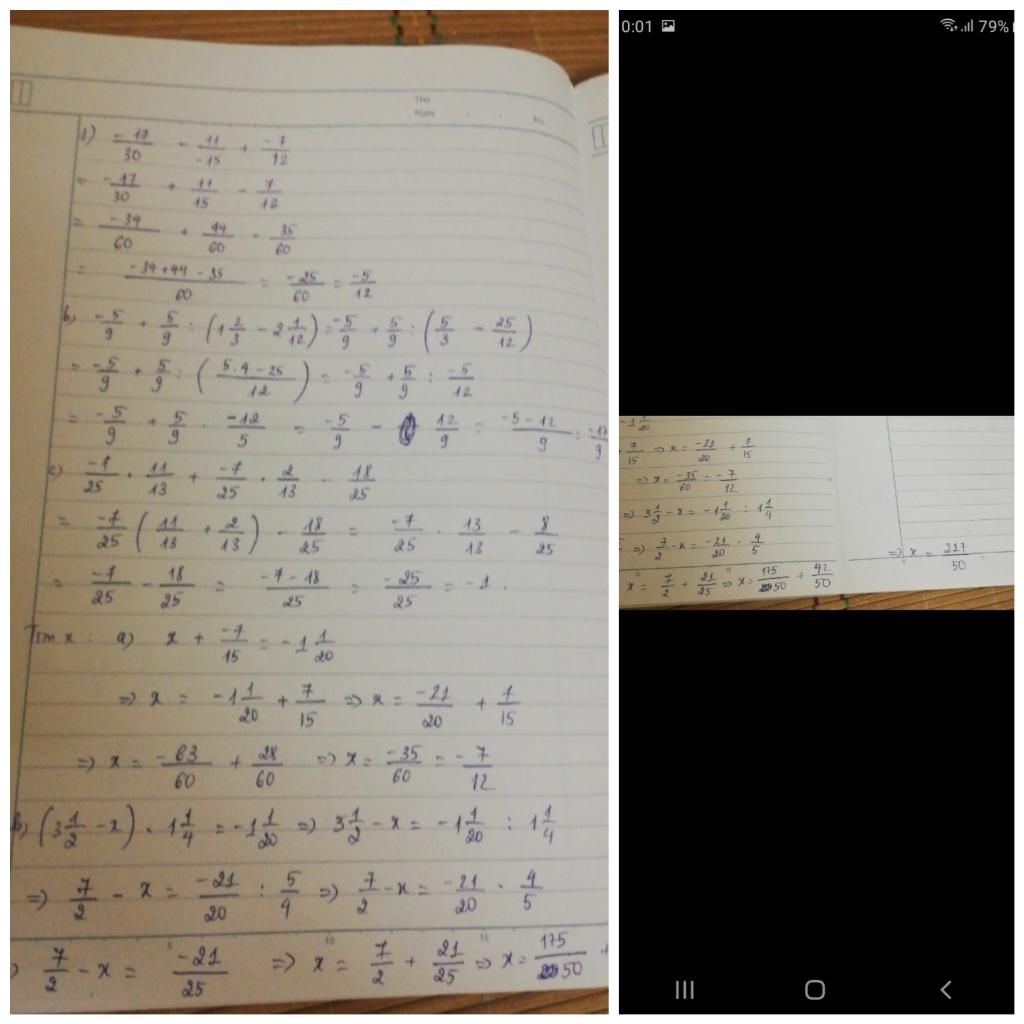 Thứ
Ngày No.
1) -17/30 - 11/-15 + -7/12
= -17/30 + 11/15 - 7/12
= -34/60 + 44/60 - 35/60
= (-34+44-35)/60 = -25/60 = -5/12
b) -5/9 + 5/9 : (1 2/3 - 2 1/12) = -5/9 + 5/9 : (5/3 - 25/12)
= -5/9 + 5/9 : ((5.4-25)/12) = -5/9 + 5/9 : -5/12
= -5/9 + 5/9 . -12/5 = -5/9 - 12/9 = (-5-12)/9 = -17/9
c) -7/25 . 11/13 + -7/25 . 2/13 - 18/25
= -7/25 (11/13 + 2/13) - 18/25 = -7/25 . 13/13 - 8/25
= -7/25 - 18/25 = (-7-18)/25 = -25/25 = -1.
Tìm x : a) x + -7/15 = -1 1/20
=> x = -1 1/20 + 7/15 => x = -21/20 + 7/15
=> x = -63/60 + 28/60 => x = -35/60 = -7/12
b) (3 1/2 - x) . 1 1/4 = -1 1/20 => 3 1/2 - x = -1 1/20 : 1 1/4
=> 7/2 - x = -21/20 : 5/4 => 7/2 - x = -21/20 . 4/5
5 10 15
7/2 - x = -21/25 => x = 7/2 + 21/25 => x = 175/50 +
0:01 79%
-1 1/20
+ 7/15 => x = -21/20 + 7/15
=> x = -35/60 = -7/12
=> 3 1/2 - x = -1 1/20 : 1 1/4
=> 7/2 - x = -21/20 . 4/5
x = 7/2 + 21/25 => x = 175/50 + 42/50
=> x = 217/50